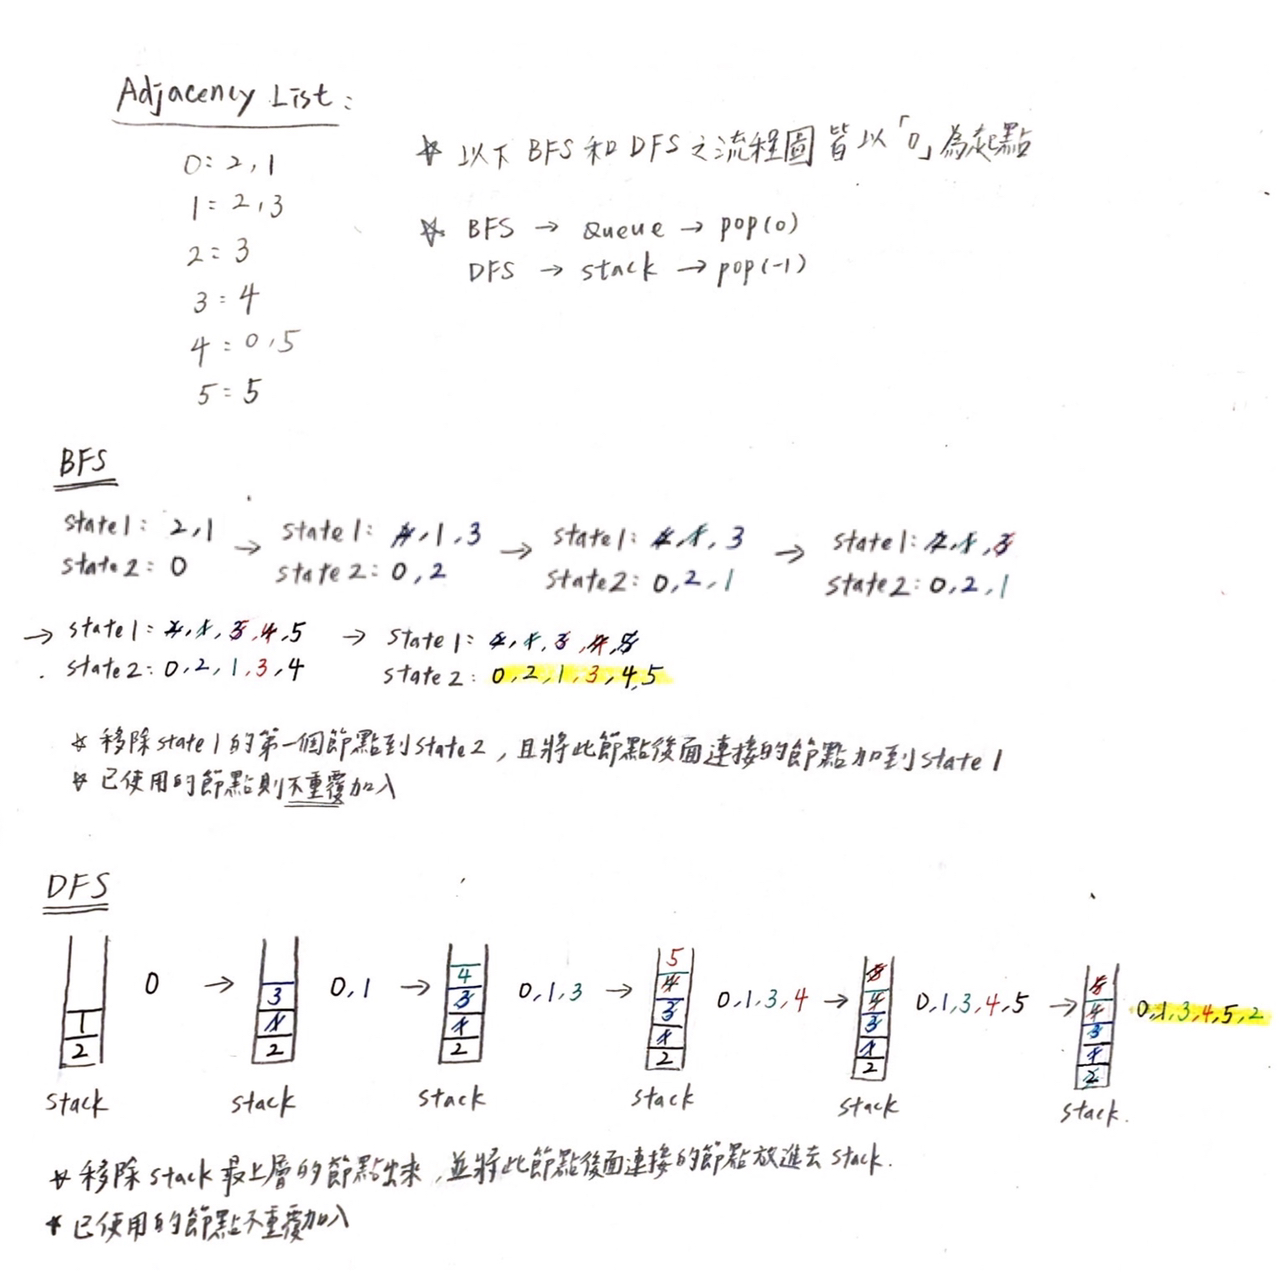 Adjacency List :
0: 2, 1
1: 2, 3
2: 3
3: 4
4: 0, 5
5: 5
* 以下 BFS 和 DFS 之流程圖皆以「0」為起點
* BFS → Queue → pop(0)
DFS → stack → pop(-1)
BFS
state1: 2, 1 → state1: 2, 1, 3 → state1: 2, 1, 3 → state1: 2, 1, 3
state2: 0 state2: 0, 2 state2: 0, 2, 1 state2: 0, 2, 1
→ state1: 2, 1, 3, 4, 5 → state1: 2, 1, 3, 4, 5
state2: 0, 2, 1, 3, 4 state2: 0, 2, 1, 3, 4, 5
* 移除state1的第一個節點到state2，且將此節點後面連接的節點加到state1
* 已使用的節點則不重覆加入
DFS
1 2 0 → 3 1 2 0, 1 → 4 3 1 2 0, 1, 3 → 5 4 3 1 2 0, 1, 3, 4 → 5 4 3 1 2 0, 1, 3, 4, 5 → 5 4 3 1 2 0, 1, 3, 4, 5, 2
stack stack stack stack stack stack.
* 移除stack最上層的節點出來，並將此節點後面連接的節點放進去stack.
* 已使用的節點不重覆加入